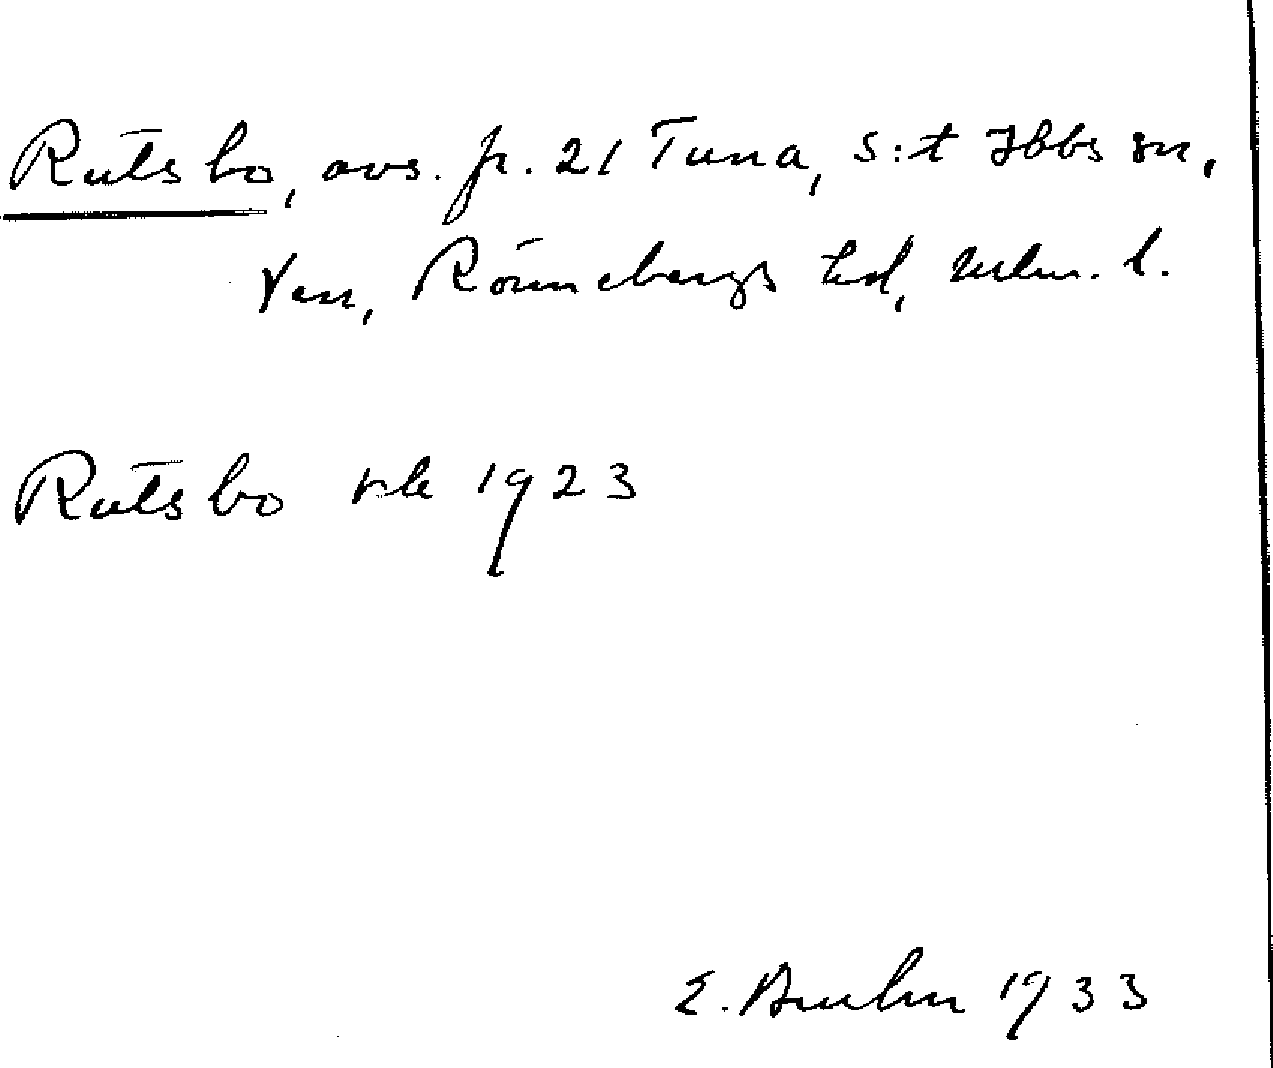 Rutsbo, avs. fr. 21 Tuna, S:t Ibbs sn,
Ven, Rönnebergs hd, Mlm. l.
Rutsbo vk 1923
E. 1933